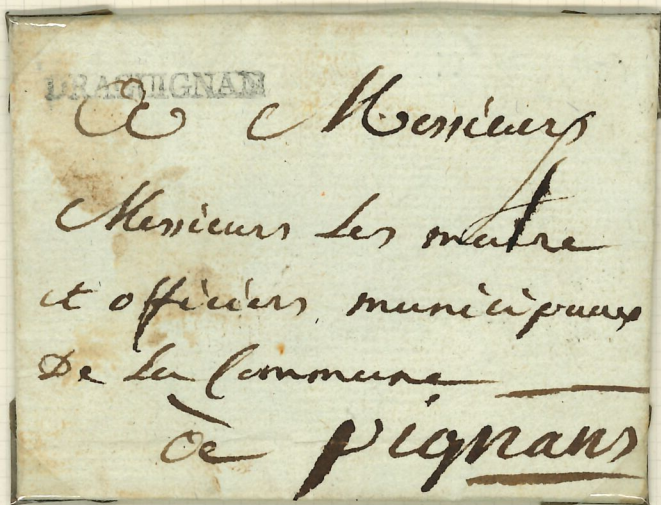 DRAGUIGNAN
A Messieurs
Messieurs Les maire
et officiers municipaux
De La Commune
a pignans